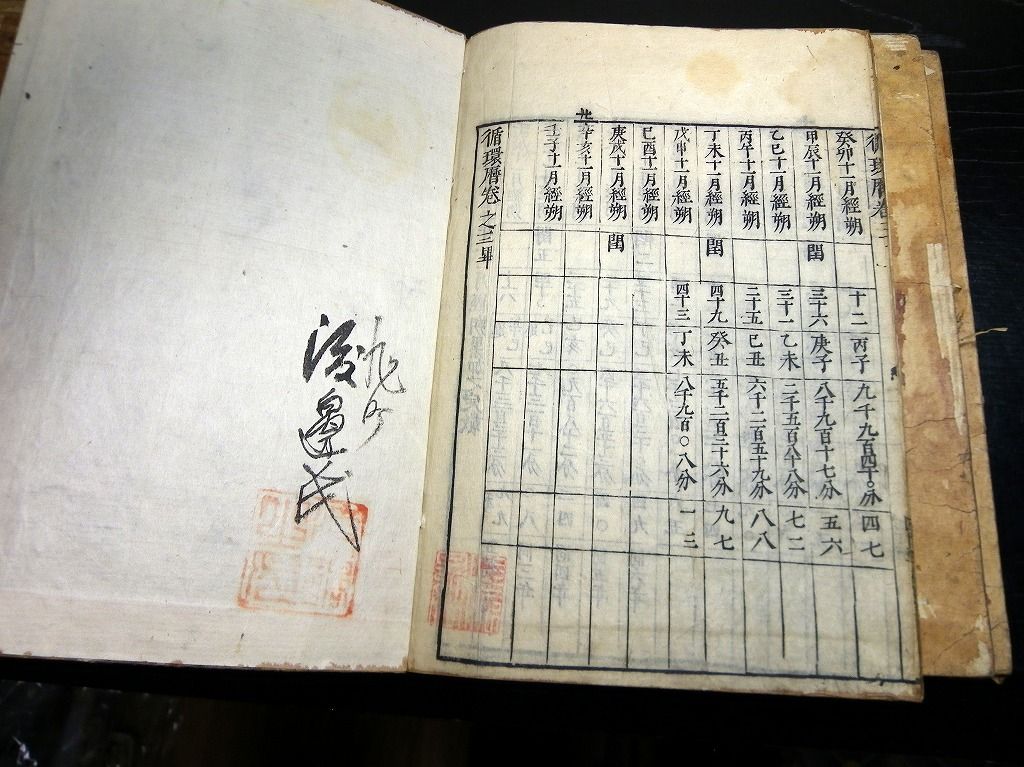 循環曆卷三
癸卯十一月經朔 十二 丙子 九千九百四十〇分 四七
甲辰十一月經朔 閏 三十六 庚子 八千九百十七分 五六
乙巳十一月經朔 三十一 乙未 二千五百八十八分 七二
丙午十一月經朔 二十五 己丑 六千二百五十九分 八八
丁未十一月經朔 閏 四十九 癸丑 五千二百三十六分 九七
戊申十一月經朔 四十三 丁未 八千九百〇八分 一三
己酉十一月經朔
庚戌十一月經朔 閏
辛亥十一月經朔
壬子十一月經朔
循環曆卷之三畢
渡邉氏